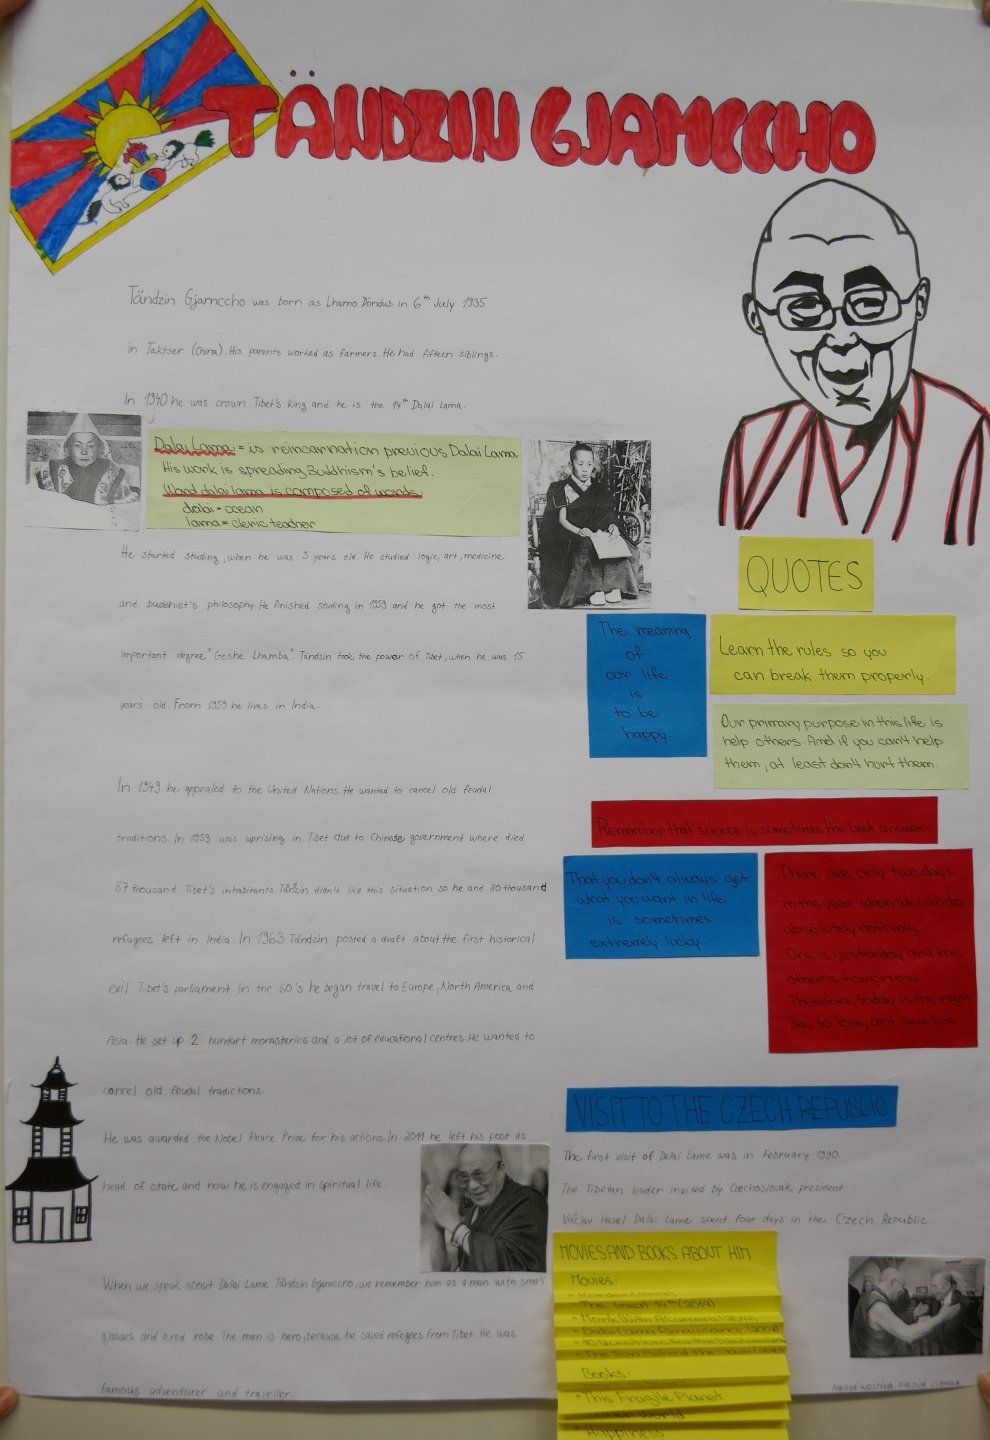 TÄNDZIN GJAMCCHO
Tändzin Gjamccho was born as Lhamo Döndub in 6th July 1935
in Taktser (China). His parents worked as farmers. He had fifteen siblings.
In 1940 he was crown Tibet's King and he is the 14th Dalai Lama.
Dalai Lama = is reincarnation previous Dalai Lama.
His work is spreading Buddhism's belief.
Word dalai lama is composed of words:
dalai = ocean
lama = cleric teacher
He started studing, when he was 5 years old. He studied logic, art, medicine
and buddhist's philosophy. He finished studing in 1959 and he got the most
important degree "Geshe Lhamba". Tändzin took the power of Tibet, when he was 15
years old. From 1959 he lives in India.
In 1949 he appealed to the United Nations. He wanted to cancel old feudal
traditions. In 1959 was uprising in Tibet due to Chinese government where died
87 thousand Tibet's inhabitants. Tändzin didn't like this situation so he and 80 thousand
refugees left in India. In 1963 Tändzin posted a draft about the first historical
exil Tibet's parliament. In the 60's he began travel to Europe, North America and
Asia. He set up 2 hundurt monasteries and a lot of educational centres. He wanted to
cancel old feudal tradictions.
He was awarded the Nobel Peace Prize for his actions. In 2011 he left his post as
head of state and now he is engaged in spiritual life.
When we speak about Dalai Lame Tändzin Gjamccho, we remember him as a man with small
glasses and a red robe. The man is hero, because he saved refegees from Tibet. He was
famous adventurer and traveller
QUOTES
The meaning
of
our life
is
to be
happy
Learn the rules so you
can break them properly.
Our primary purpose in this life is
help others. And if you can't help
them, at least don't hurt them.
Remember that silence is sometimes the best answer
That you don't always get
what you want in life
is sometimes
extremely lucky.
There are only two days
in the year when we can do
absolutely nothing
One is yesterday and the
other is tomorrow.
Therefore, today is the right
day to love, act and live.
VISIT TO THE CZECH REPUBLIC
The first visit of Dalai Lame was in February 1990.
The Tibetan leader invited by Czechoslovak president
Václav Havel. Dalai Lame spent four days in the Czech Republic.
MOVIES AND BOOKS ABOUT HIM
Movies:
• The Great 14th (2019)
• Monk With A Camera
• Dalai Lama Renaissance (2007)
• 10 Questions for the Dalai Lama
• The Sun Behind the Clouds
Books:
• This Fragile Planet
World
Happiness